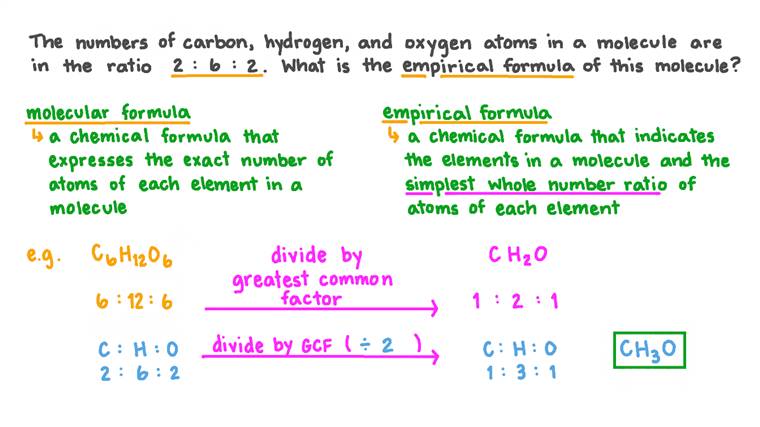 The numbers of carbon, hydrogen, and oxygen atoms in a molecule are
in the ratio 2 : 6 : 2. What is the empirical formula of this molecule?
molecular formula
↳ a chemical formula that
expresses the exact number of
atoms of each element in a
molecule
empirical formula
↳ a chemical formula that indicates
the elements in a molecule and the
simplest whole number ratio of
atoms of each element
e.g. C₆H₁₂O₆
divide by
greatest common
factor
CH₂O
6 : 12 : 6
1 : 2 : 1
C : H : O
divide by GCF ( ÷ 2 )
C : H : O
2 : 6 : 2
1 : 3 : 1
CH₃O